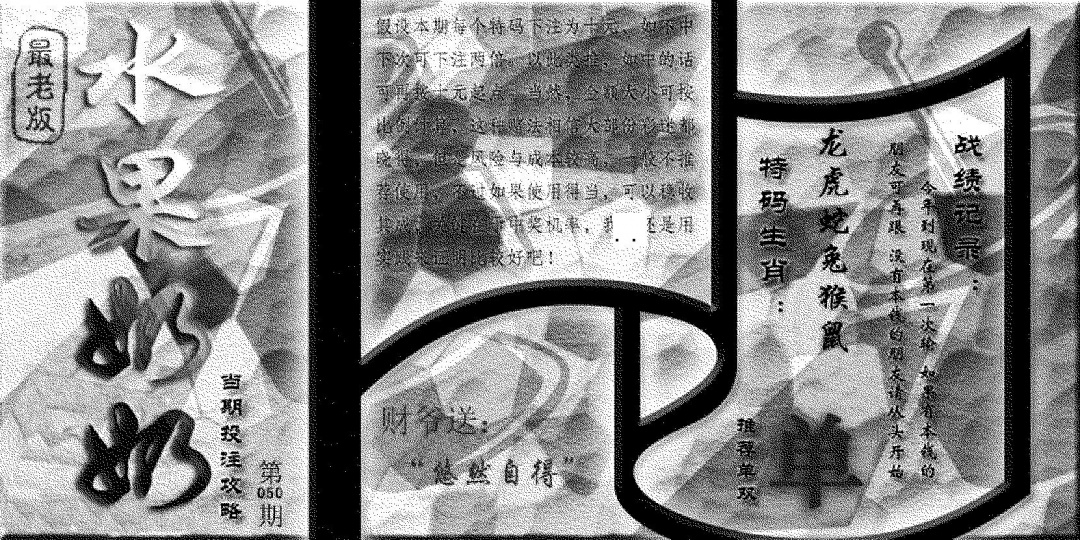 最老版
水果奶奶
当期投注攻略
第
050
期
假设本期每个特码下注为十元，如不中
下次可下注两倍，以此类推，如中的话
可再按十元起点，当然，金额大小可按
比例计算，这种赌法相信大部份彩迷都
晓得，但是风险与成本较高，一般不推
荐使用，不过如果使用得当，可以稳收
中奖机率，我
还是用
比较好吧！
财爷送：
“悠然自得”
战绩记录：
今年到现在第一次输 如果有本钱的
朋友可再跟 没有本钱的朋友请从头开始
龙虎蛇兔猴鼠
特码生肖：
推荐单双
单